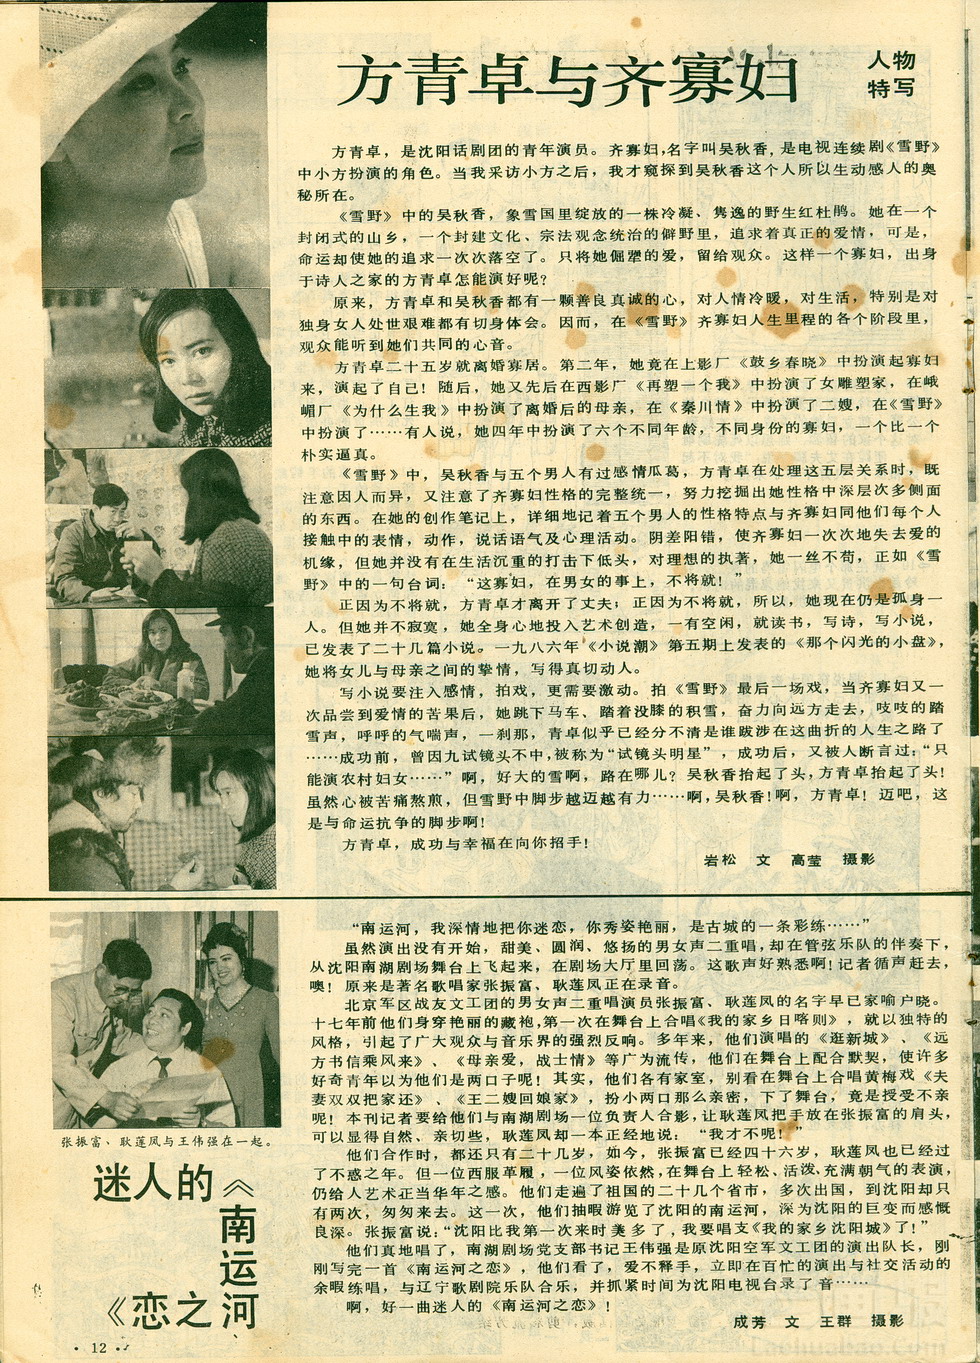 方青卓与齐寡妇
人物
特写
方青卓，是沈阳话剧团的青年演员。齐寡妇，名字叫吴秋香，是电视连续剧《雪野》
中小方扮演的角色。当我采访小方之后，我才窥探到吴秋香这个人所以生动感人的奥
秘所在。
《雪野》中的吴秋香，象雪国里绽放的一株冷凝、隽逸的野生红杜鹃。她在一个
封闭式的山乡，一个封建文化、宗法观念统治的僻野里，追求着真正的爱情，可是，
命运却使她的追求一次次落空了。只将她倔犟的爱，留给观众。这样一个寡妇，出身
于诗人之家的方青卓怎能演好呢？
原来，方青卓和吴秋香都有一颗善良真诚的心，对人情冷暖，对生活，特别是对
独身女人处世艰难都有切身体会。因而，在《雪野》齐寡妇人生里程的各个阶段里，
观众能听到她们共同的心音。
方青卓二十五岁就离婚寡居。第二年，她竟在上影厂《鼓乡春晓》中扮演起寡妇
来，演起了自己！随后，她又先后在西影厂《再塑一个我》中扮演了女雕塑家，在峨
嵋厂《为什么生我》中扮演了离婚后的母亲，在《秦川情》中扮演了二嫂，在《雪野》
中扮演了……有人说，她四年中扮演了六个不同年龄，不同身份的寡妇，一个比一个
朴实逼真。
《雪野》中，吴秋香与五个男人有过感情瓜葛，方青卓在处理这五层关系时，既
注意因人而异，又注意了齐寡妇性格的完整统一，努力挖掘出她性格中深层次多侧面
的东西。在她的创作笔记上，详细地记着五个男人的性格特点与齐寡妇同他们每个人
接触中的表情，动作，说话语气及心理活动。阴差阳错，使齐寡妇一次次地失去爱的
机缘，但她并没有在生活沉重的打击下低头，对理想的执著，她一丝不苟，正如《雪
野》中的一句台词：“这寡妇，在男女的事上，不将就！”
正因为不将就，方青卓才离开了丈夫；正因为不将就，所以，她现在仍是孤身一
人。但她并不寂寞，她全身心地投入艺术创造，一有空闲，就读书，写诗，写小说，
已发表了二十几篇小说。一九八六年《小说潮》第五期上发表的《那个闪光的小盘》，
她将女儿与母亲之间的挚情，写得真切动人。
写小说要注入感情，拍戏，更需要激动。拍《雪野》最后一场戏，当齐寡妇又一
次品尝到爱情的苦果后，她跳下马车、踏着没膝的积雪，奋力向远方走去，吱吱的踏
雪声，呼呼的气喘声，一刹那，青卓似乎已经分不清是谁跋涉在这曲折的人生之路了
……成功前，曾因九试镜头不中，被称为“试镜头明星”，成功后，又被人断言过：“只
能演农村妇女……”啊，好大的雪啊，路在哪儿？吴秋香抬起了头，方青卓抬起了头！
虽然心被苦痛熬煎，但雪野中脚步越迈越有力……啊，吴秋香！啊，方青卓！迈吧，这
是与命运抗争的脚步啊！
方青卓，成功与幸福在向你招手！
岩松　文　高莹　摄影
张振富、耿莲凤与王伟强在一起。
迷人的《南运河之恋》
“南运河，我深情地把你迷恋，你秀姿艳丽，是古城的一条彩练……”
虽然演出没有开始，甜美、圆润、悠扬的男女声二重唱，却在管弦乐队的伴奏下，
从沈阳南湖剧场舞台上飞起来，在剧场大厅里回荡。这歌声好熟悉啊！记者循声赶去，
噢！原来是著名歌唱家张振富、耿莲凤正在录音。
北京军区战友文工团的男女声二重唱演员张振富、耿莲凤的名字早已家喻户晓。
十七年前他们身穿艳丽的藏袍，第一次在舞台上合唱《我的家乡日喀则》，就以独特的
风格，引起了广大观众与音乐界的强烈反响。多年来，他们演唱的《逛新城》、《远
方书信乘风来》、《母亲爱，战士情》等广为流传，他们在舞台上配合默契，使许多
好奇青年以为他们是两口子呢！其实，他们各有家室，别看在舞台上合唱黄梅戏《夫
妻双双把家还》、《王二嫂回娘家》，扮小两口那么亲密，下了舞台，竟是授受不亲
呢！本刊记者要给他们与南湖剧场一位负责人合影，让耿莲凤把手放在张振富的肩头，
可以显得自然、亲切些，耿莲凤却一本正经地说：“我才不呢！”
他们合作时，都还只有二十几岁，如今，张振富已经四十六岁，耿莲凤也已经过
了不惑之年。但一位西服革履，一位风姿依然，在舞台上轻松、活泼、充满朝气的表演，
仍给人艺术正当华年之感。他们走遍了祖国的二十几个省市，多次出国，到沈阳却只
有两次，匆匆来去。这一次，他们抽暇游览了沈阳的南运河，深为沈阳的巨变而感慨
良深。张振富说：“沈阳比我第一次来时美多了，我要唱支《我的家乡沈阳城》了！”
他们真地唱了，南湖剧场党支部书记王伟强是原沈阳空军文工团的演出队长，刚
刚写完一首《南运河之恋》，他们看了，爱不释手，立即在百忙的演出与社交活动的
余暇练唱，与辽宁歌剧院乐队合乐，并抓紧时间为沈阳电视台录了音……
啊，好一曲迷人的《南运河之恋》！
成芳　文　王群　摄影
·12·